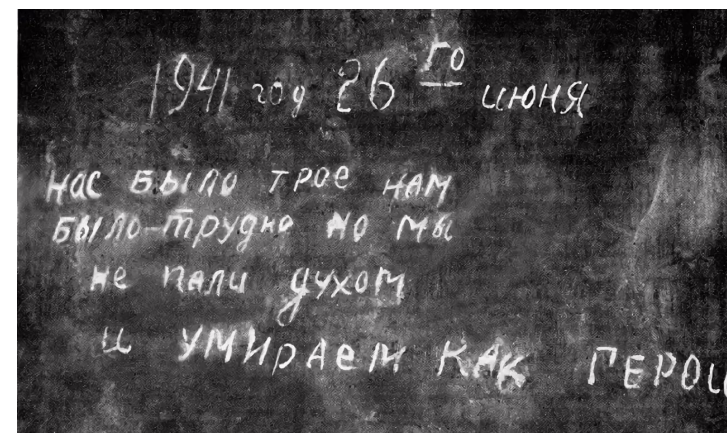 1941 год 26го июня
нас было трое нам
было трудно но мы
не пали духом
и умираем как герои